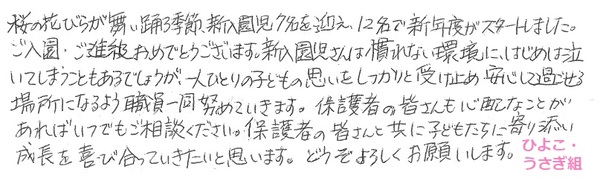 桜の花びらが舞い踊る季節、新入園児7名を迎え、12名で新年度がスタートしました。
ご入園・ご進級おめでとうございます。新入園児さんは慣れない環境に、はじめは泣
いてしまうこともあるでしょうが、一人ひとりの子どもの思いをしっかりと受け止め安心して過ごせる
場所になるよう職員一同努めていきます。保護者の皆さんも心配なことが
あればいつでもご相談ください。保護者の皆さんと共に子どもたちに寄り添い
成長を喜び合っていきたいと思います。どうぞよろしくお願いします。
ひよこ・
うさぎ組